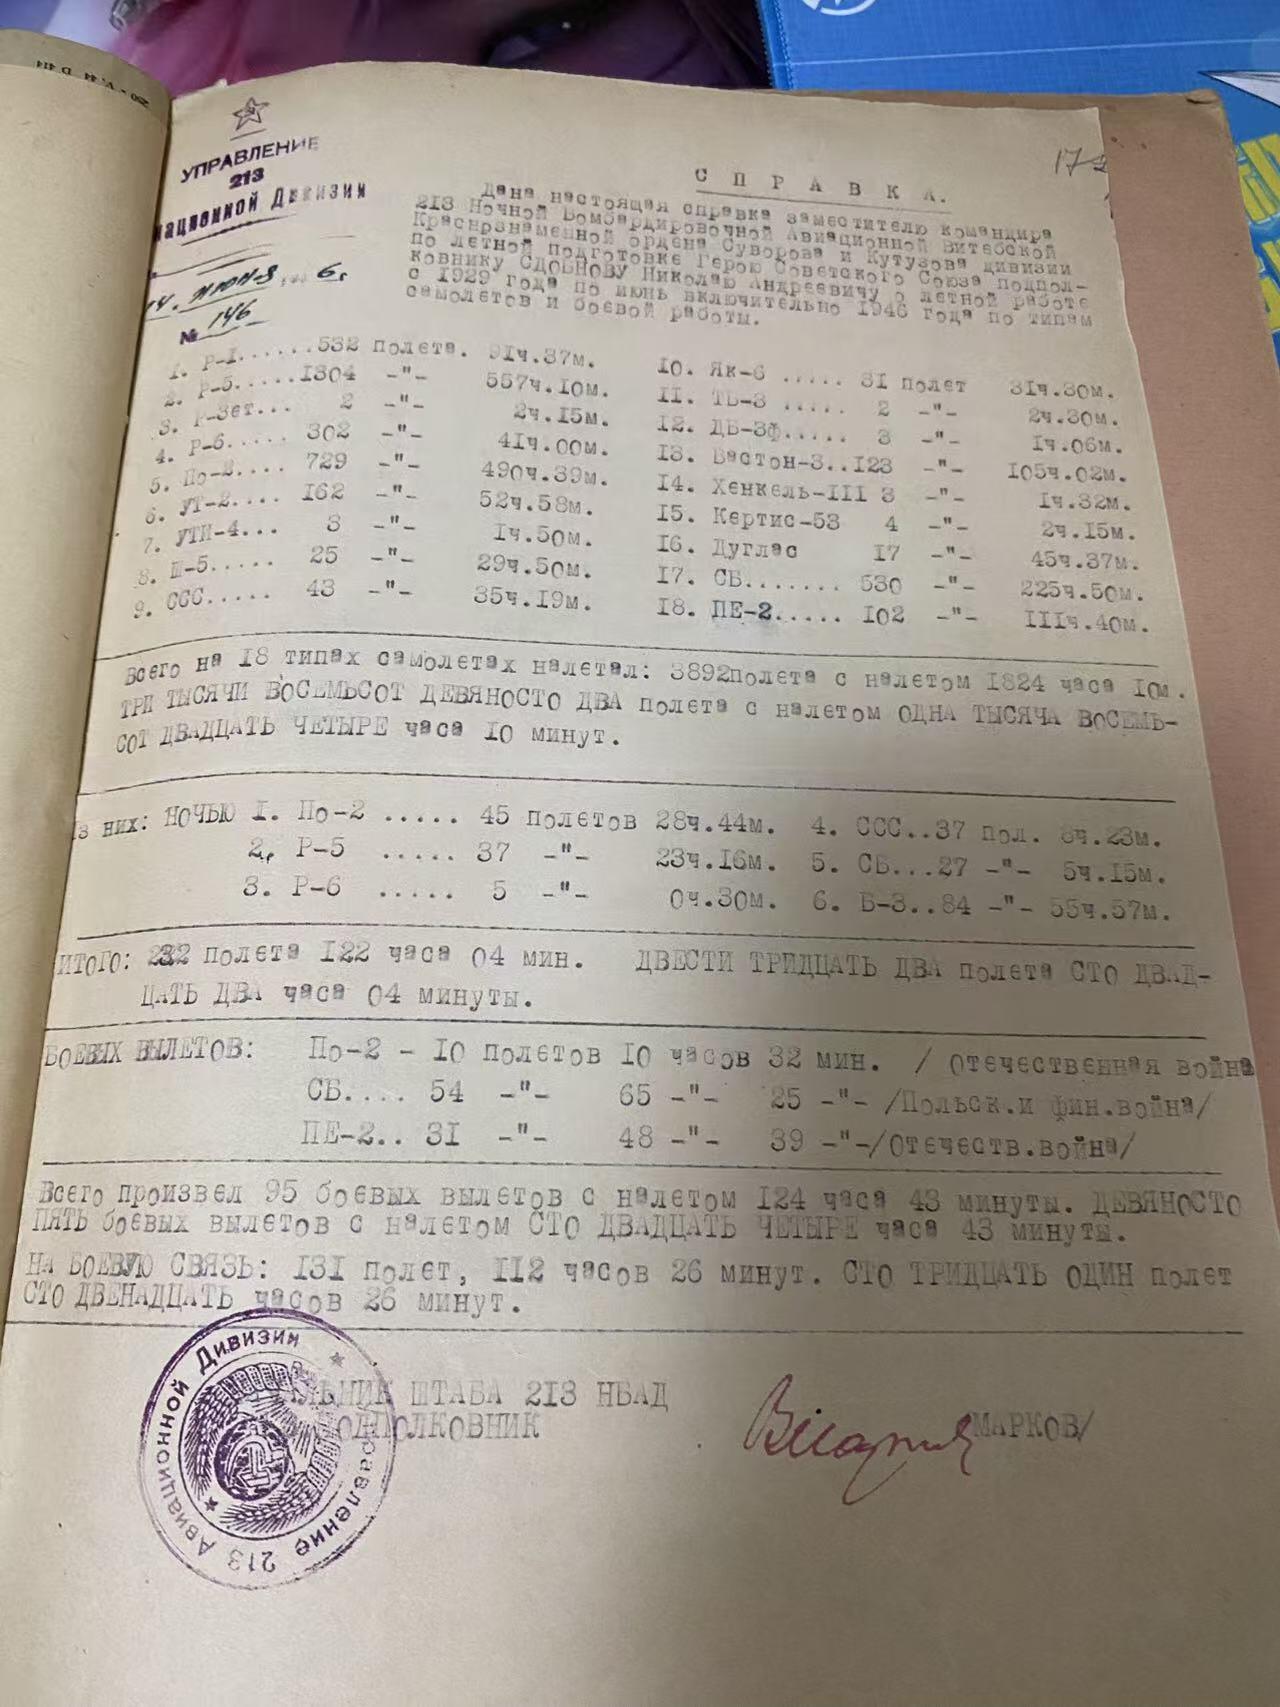 УПРАВЛЕНИЕ
213
иационной Дивизии
14. июня 6г.
№ 146
С П Р А В К А.
Дана настоящая справка заместителю командира
213 Ночной Бомбардировочной Авиационной Витебской
Краснрзнаменной ордена Суворова и Кутузова дивизии
по летной подготовке Герою Советского Союза подпол-
ковнику СДОБНОВУ Николаю Андреевичу о летной работе
с 1929 года по июнь включительно 1946 года по типам
самолетов и боевой работы.
1. Р-I......532 полета. 91ч.37м.
2. Р-5.....1304 -"- 557ч.10м.
3. Р-Зет... 2 -"- 2ч.15м.
4. Р-6..... 302 -"- 41ч.00м.
5. По-2.... 729 -"- 490ч.39м.
6. УТ-2.... 162 -"- 52ч.58м.
7. УТИ-4... 3 -"- 1ч.50м.
8. Ш-5..... 25 -"- 29ч.50м.
9. ССС..... 43 -"- 35ч.19м.
10. Як-6 ..... 31 полет 31ч.30м.
11. ТБ-3 ..... 2 -"- 2ч.30м.
12. ДБ-3ф..... 3 -"- 1ч.06м.
13. Бастон-3..123 -"- 105ч.02м.
14. Хенкель-III 3 -"- 1ч.32м.
15. Кертис-53 4 -"- 2ч.15м.
16. Дуглас 17 -"- 45ч.37м.
17. СБ....... 530 -"- 225ч.50м.
18. ПЕ-2..... 102 -"- 111ч.40м.
Всего на 18 типах самолетах налетал: 3892полета с налетом 1824 часа 10м.
ТРИ ТЫСЯЧИ ВОСЕМЬСОТ ДЕВЯНОСТО ДВА полета с налетом ОДНА ТЫСЯЧА ВОСЕМЬ-
СОТ ДВАДЦАТЬ ЧЕТЫРЕ часа 10 минут.
Из них: НОЧЬЮ 1. По-2 ..... 45 полетов 28ч.44м. 4. ССС..37 пол. 8ч.23м.
2. Р-5 ..... 37 -"- 23ч.16м. 5. СБ...27 -"- 5ч.15м.
3. Р-6 ..... 5 -"- 0ч.30м. 6. Б-3..84 -"- 55ч.57м.
ИТОГО: 232 полета 122 часа 04 мин. ДВЕСТИ ТРИДЦАТЬ ДВА полета СТО ДВАД-
ЦАТЬ ДВА часа 04 минуты.
БОЕВЫХ ВЫЛЕТОВ: По-2 - 10 полетов 10 часов 32 мин. / Отечественная война
СБ.... 54 -"- 65 -"- 25 -"- /Польск.и фин.война/
ПЕ-2.. 31 -"- 48 -"- 39 -"-/Отечеств.война/
Всего произвел 95 боевых вылетов с налетом 124 часа 43 минуты. ДЕВЯНОСТО
ПЯТЬ боевых вылетов с налетом СТО ДВАДЦАТЬ ЧЕТЫРЕ часа 43 минуты.
НА БОЕВУЮ СВЯЗЬ: 131 полет, 112 часов 26 минут. СТО ТРИДЦАТЬ ОДИН полет
СТО ДВЕНАДЦАТЬ часов 26 минут.
АЛЬНИК ШТАБА 213 НБАД
ПОДПОЛКОВНИК /МАРКОВ/
Управление 213 Авиационной Дивизии